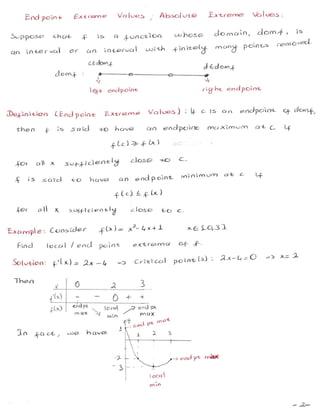 End point Extreme Values, Absolute Extreme Values:
Suppose that f is a function whose domain, domf, is
an interval or an interval with finitely many points removed.
c∈domf d∈domf
domf:
left endpoint right endpoint
Definition (Endpoint Extreme Values): if c is an endpoint of domf,
then f is said to have an endpoint maximum at c if
f(c) ≥ f(x)
for all x sufficiently close to c.
f is said to have an endpoint minimum at c if
f(c) ≤ f(x)
for all x sufficiently close to c.
Example: Consider f(x) = x²-4x+1 x∈[0,3]
Find local / end point extrema of f.
Solution: f'(x) = 2x-4 → Critical point(s): 2x-4=0 → x=2
Then
x 0 2 3
f'(x) - - 0 + +
f(x) endpt max local min end pt max
In fact, we have
1 end pt max
1 2 3
-2 end pt max
-3
local
min
-2-